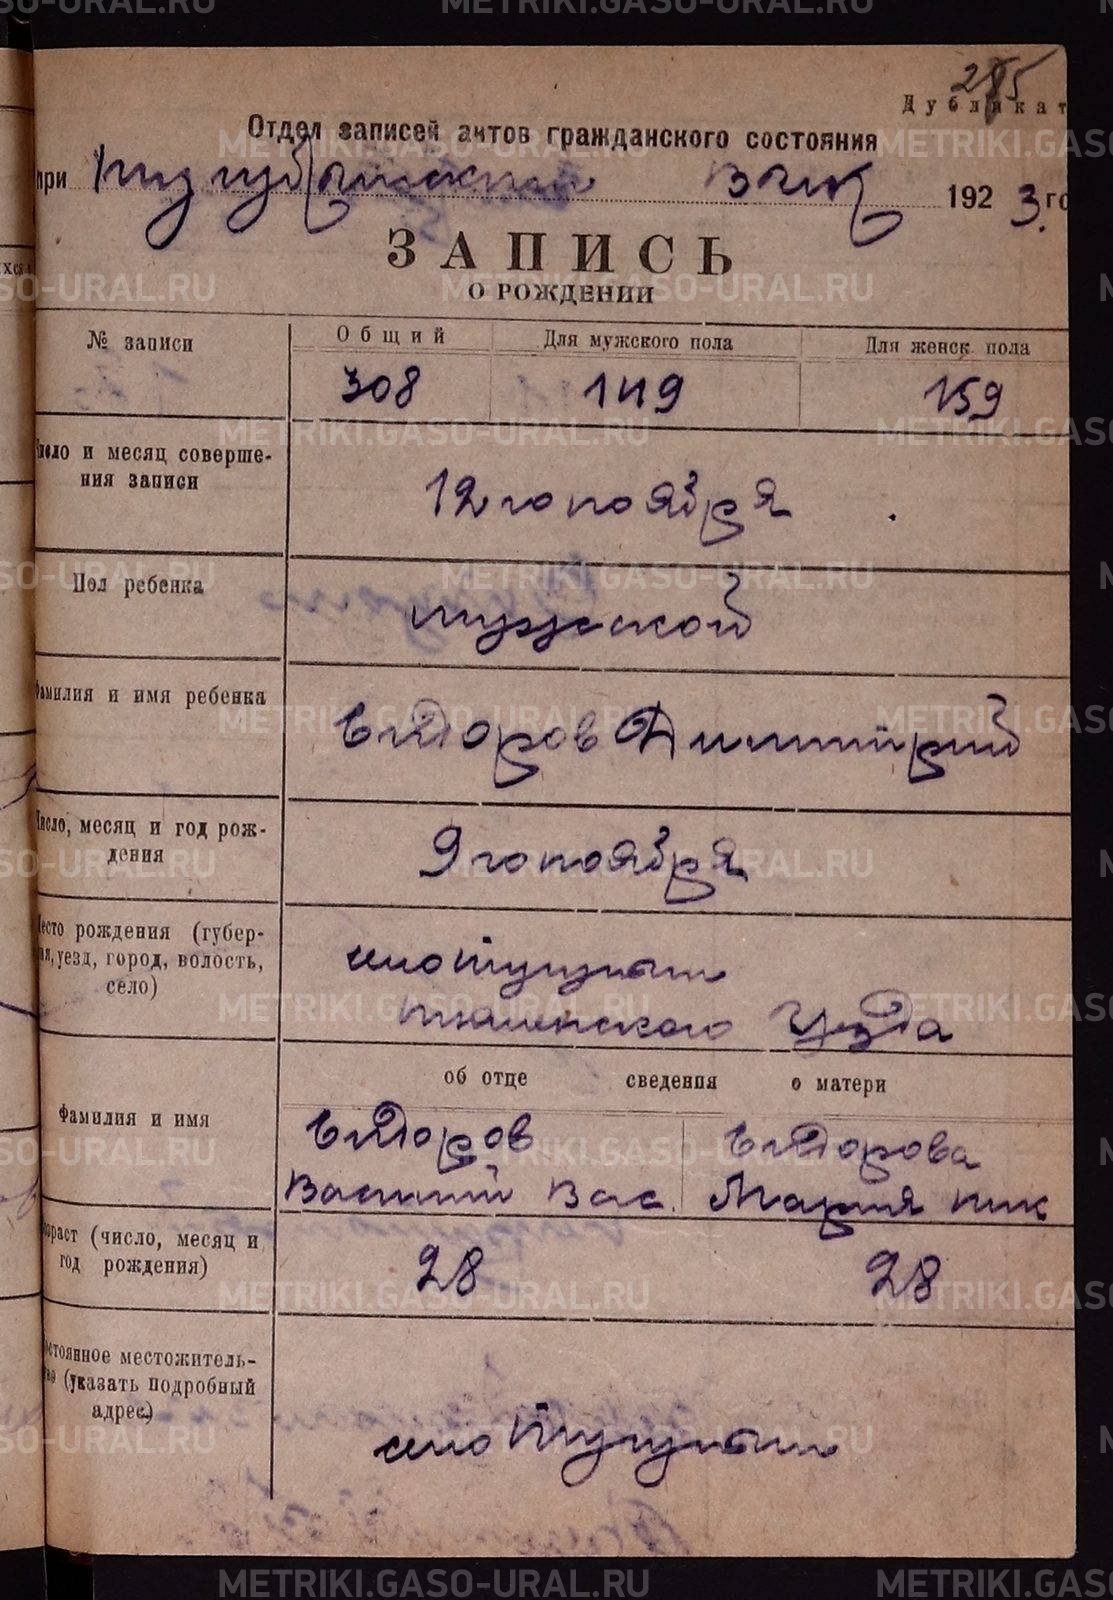 285
Дубликат
Отдел записей актов гражданского состояния
при Тугулымский Вик 1923. го
ЗАПИСЬ
О РОЖДЕНИИ
№ записи
Общий
Для мужского пола
Для женск. пола
308
149
159
Число и месяц соверше-
ния записи
12 го ноября
Пол ребенка
мужской
Фамилия и имя ребенка
Димитрий
Число, месяц и год рож-
дения
9 го ноября
Место рождения (губер-
ния, уезд, город, волость,
село)
село Тугулым
тюменского уезда
об отце
сведения
о матери
Фамилия и имя
Василий Вас.
Мария Ник
Возраст (число, месяц и
год рождения)
28
28
Постоянное местожитель-
ство (указать подробный
адрес)
село Тугулым
METRIKI.GASO-URAL.RU